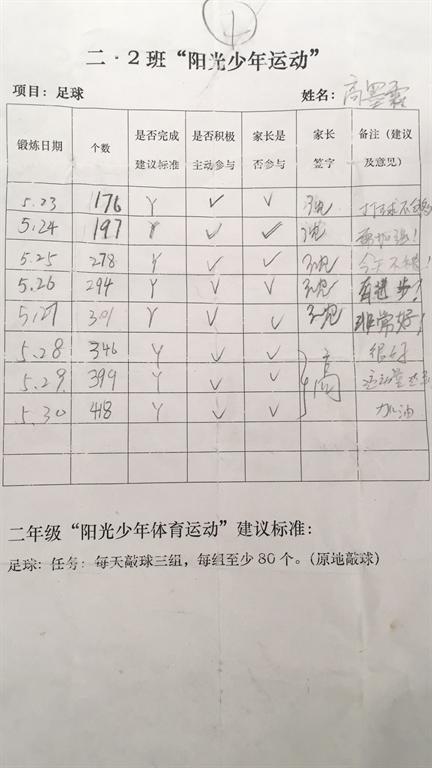 1
二·2班“阳光少年运动”
项目：足球 姓名：高墨霖
锻炼日期 个数 是否完成建议标准 是否积极主动参与 家长是否参与 家长签字 备注（建议及意见）
5.23 176 Y ✓ ✓
5.24 197 Y ✓ ✓ 再加强！
5.25 278 Y ✓ ✓ 今天不错！
5.26 294 Y ✓ ✓ 再进步！
5.27 301 Y ✓ ✓ 非常好！
5.28 346 Y ✓ ✓ 高 很好
5.29 399 Y ✓ ✓
5.30 418 Y ✓ ✓ 加油
二年级“阳光少年体育运动”建议标准：
足球：任务：每天敲球三组，每组至少 80 个。（原地敲球）